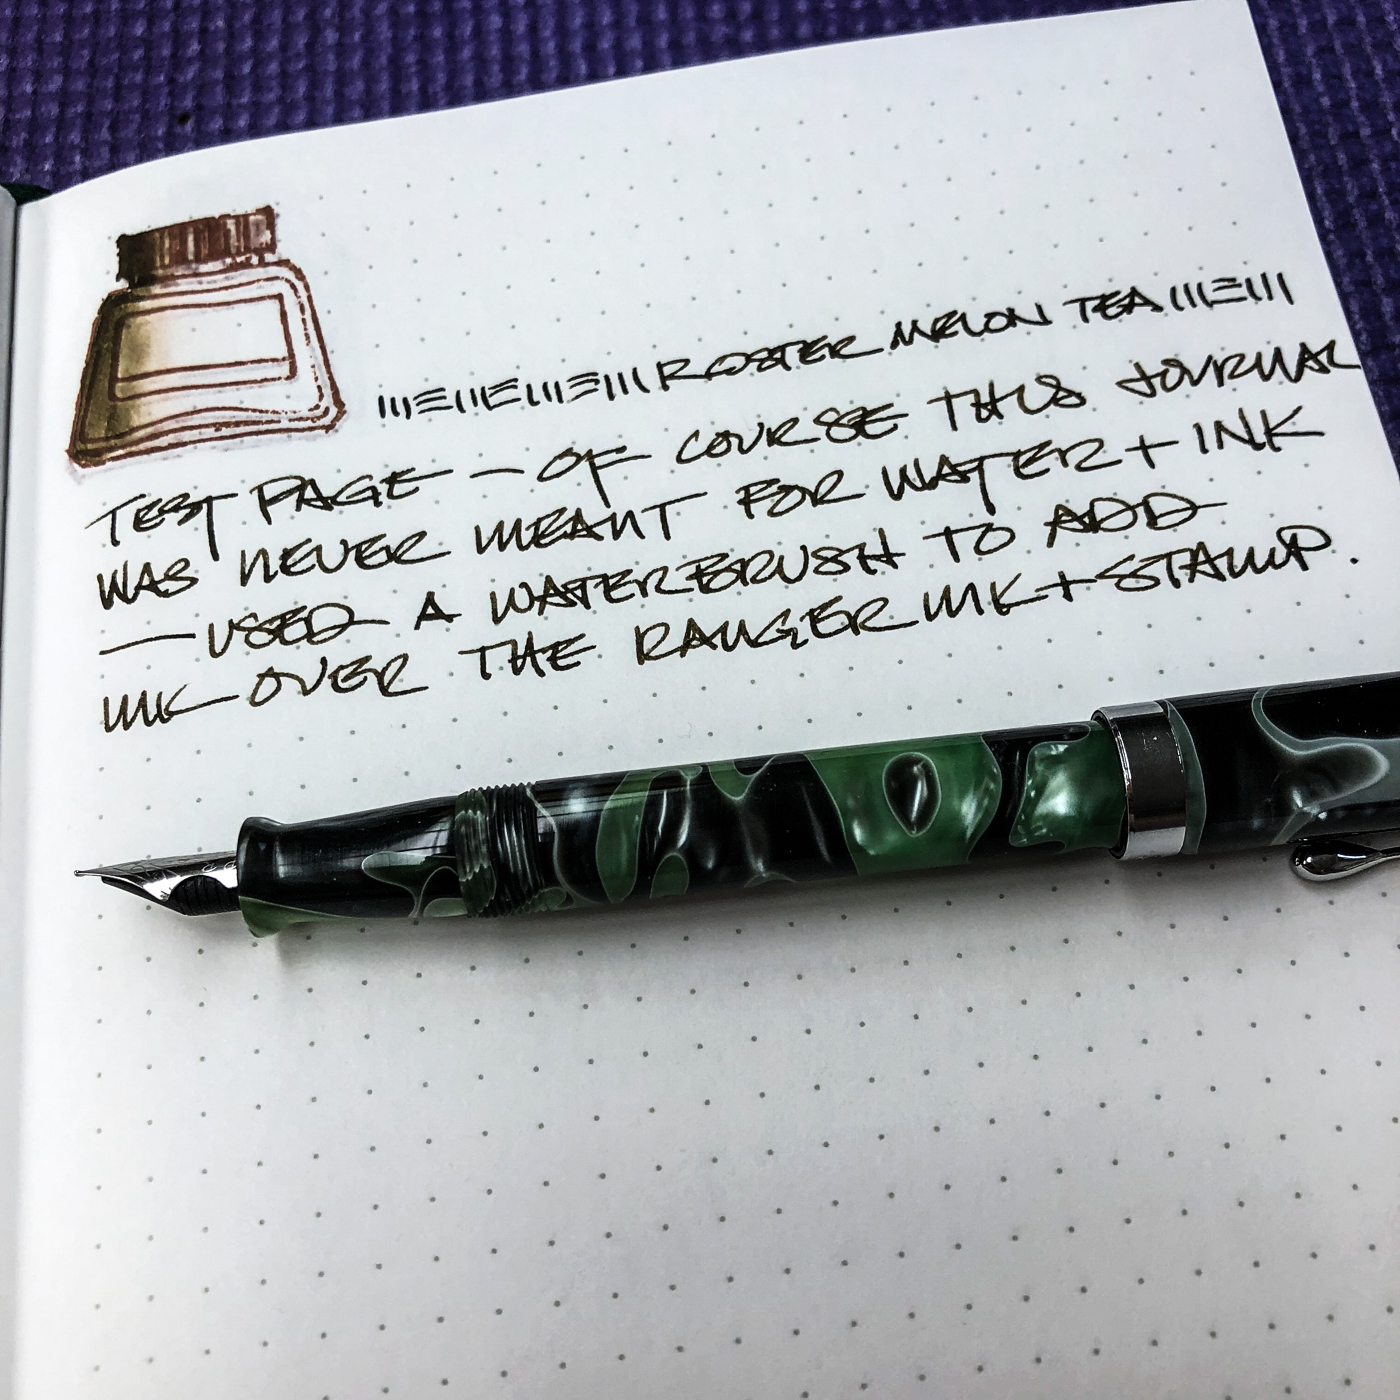 ROSTER MELON TEA
TEST PAGE — OF COURSE THIS JOURNAL
WAS NEVER MEANT FOR WATER + INK
— USED A WATERBRUSH TO ADD
INK OVER THE RANGER INK + STAMP.